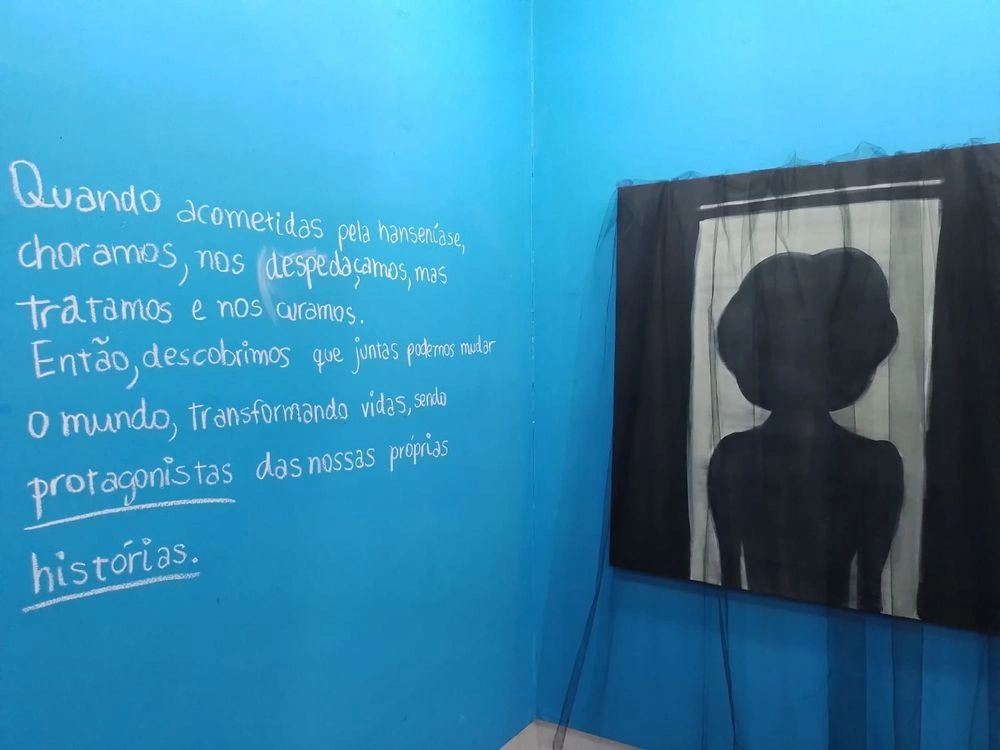 Quando acometidas pela hanseníase,
choramos, nos despedaçamos, mas
tratamos e nos curamos.
Então, descobrimos que juntas podemos mudar
o mundo, transformando vidas, sendo
protagonistas das nossas próprias
histórias.